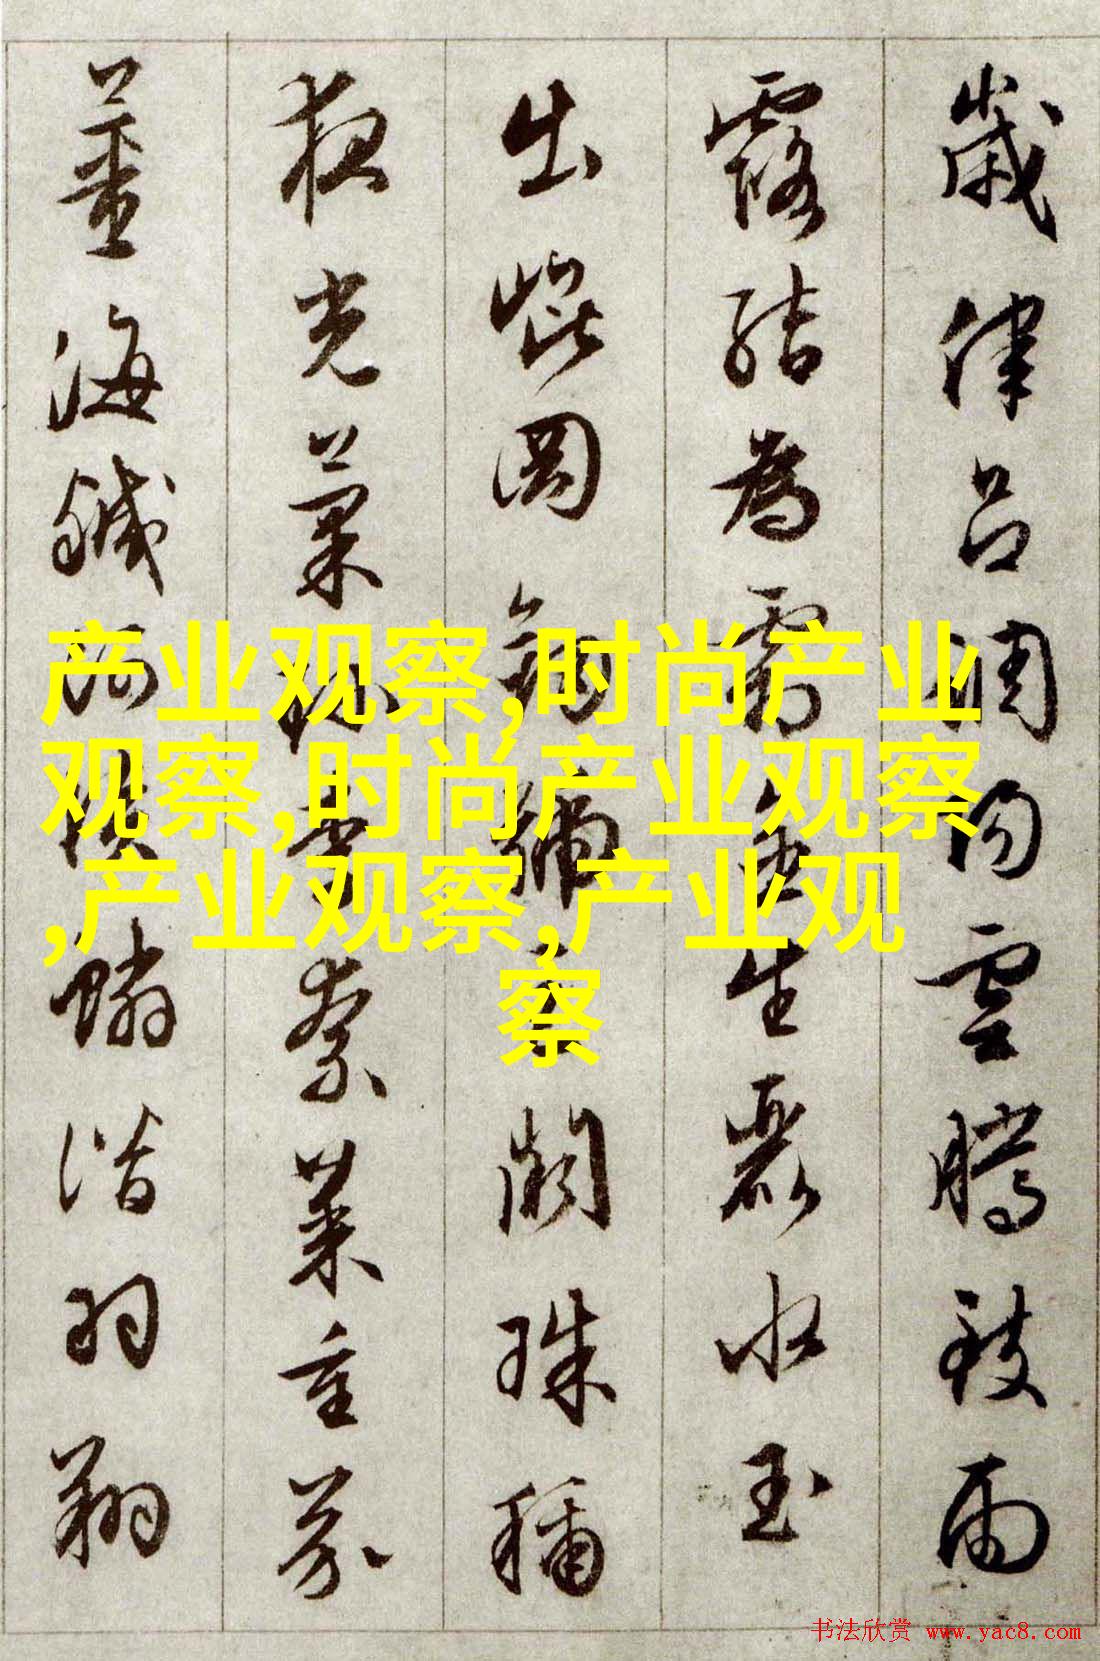 歲律呂調陽雲騰致雨
露結為霜金生麗水玉
出崐岡劍號巨闕珠稱
夜光菓珍李柰菜重芥
薑海鹹河淡鱗潛羽翔
产业观察,时尚产业
观察,时尚产业观察
,产业观察,产业观
察
书法欣赏 www.yac8.com